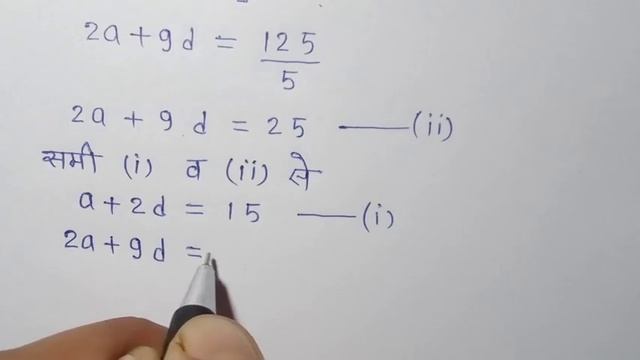 2a + 9d = 125/5
2a + 9d = 25 ——(ii)
समी (i) व (ii) से
a + 2d = 15 ——(i)
2a + 9d =